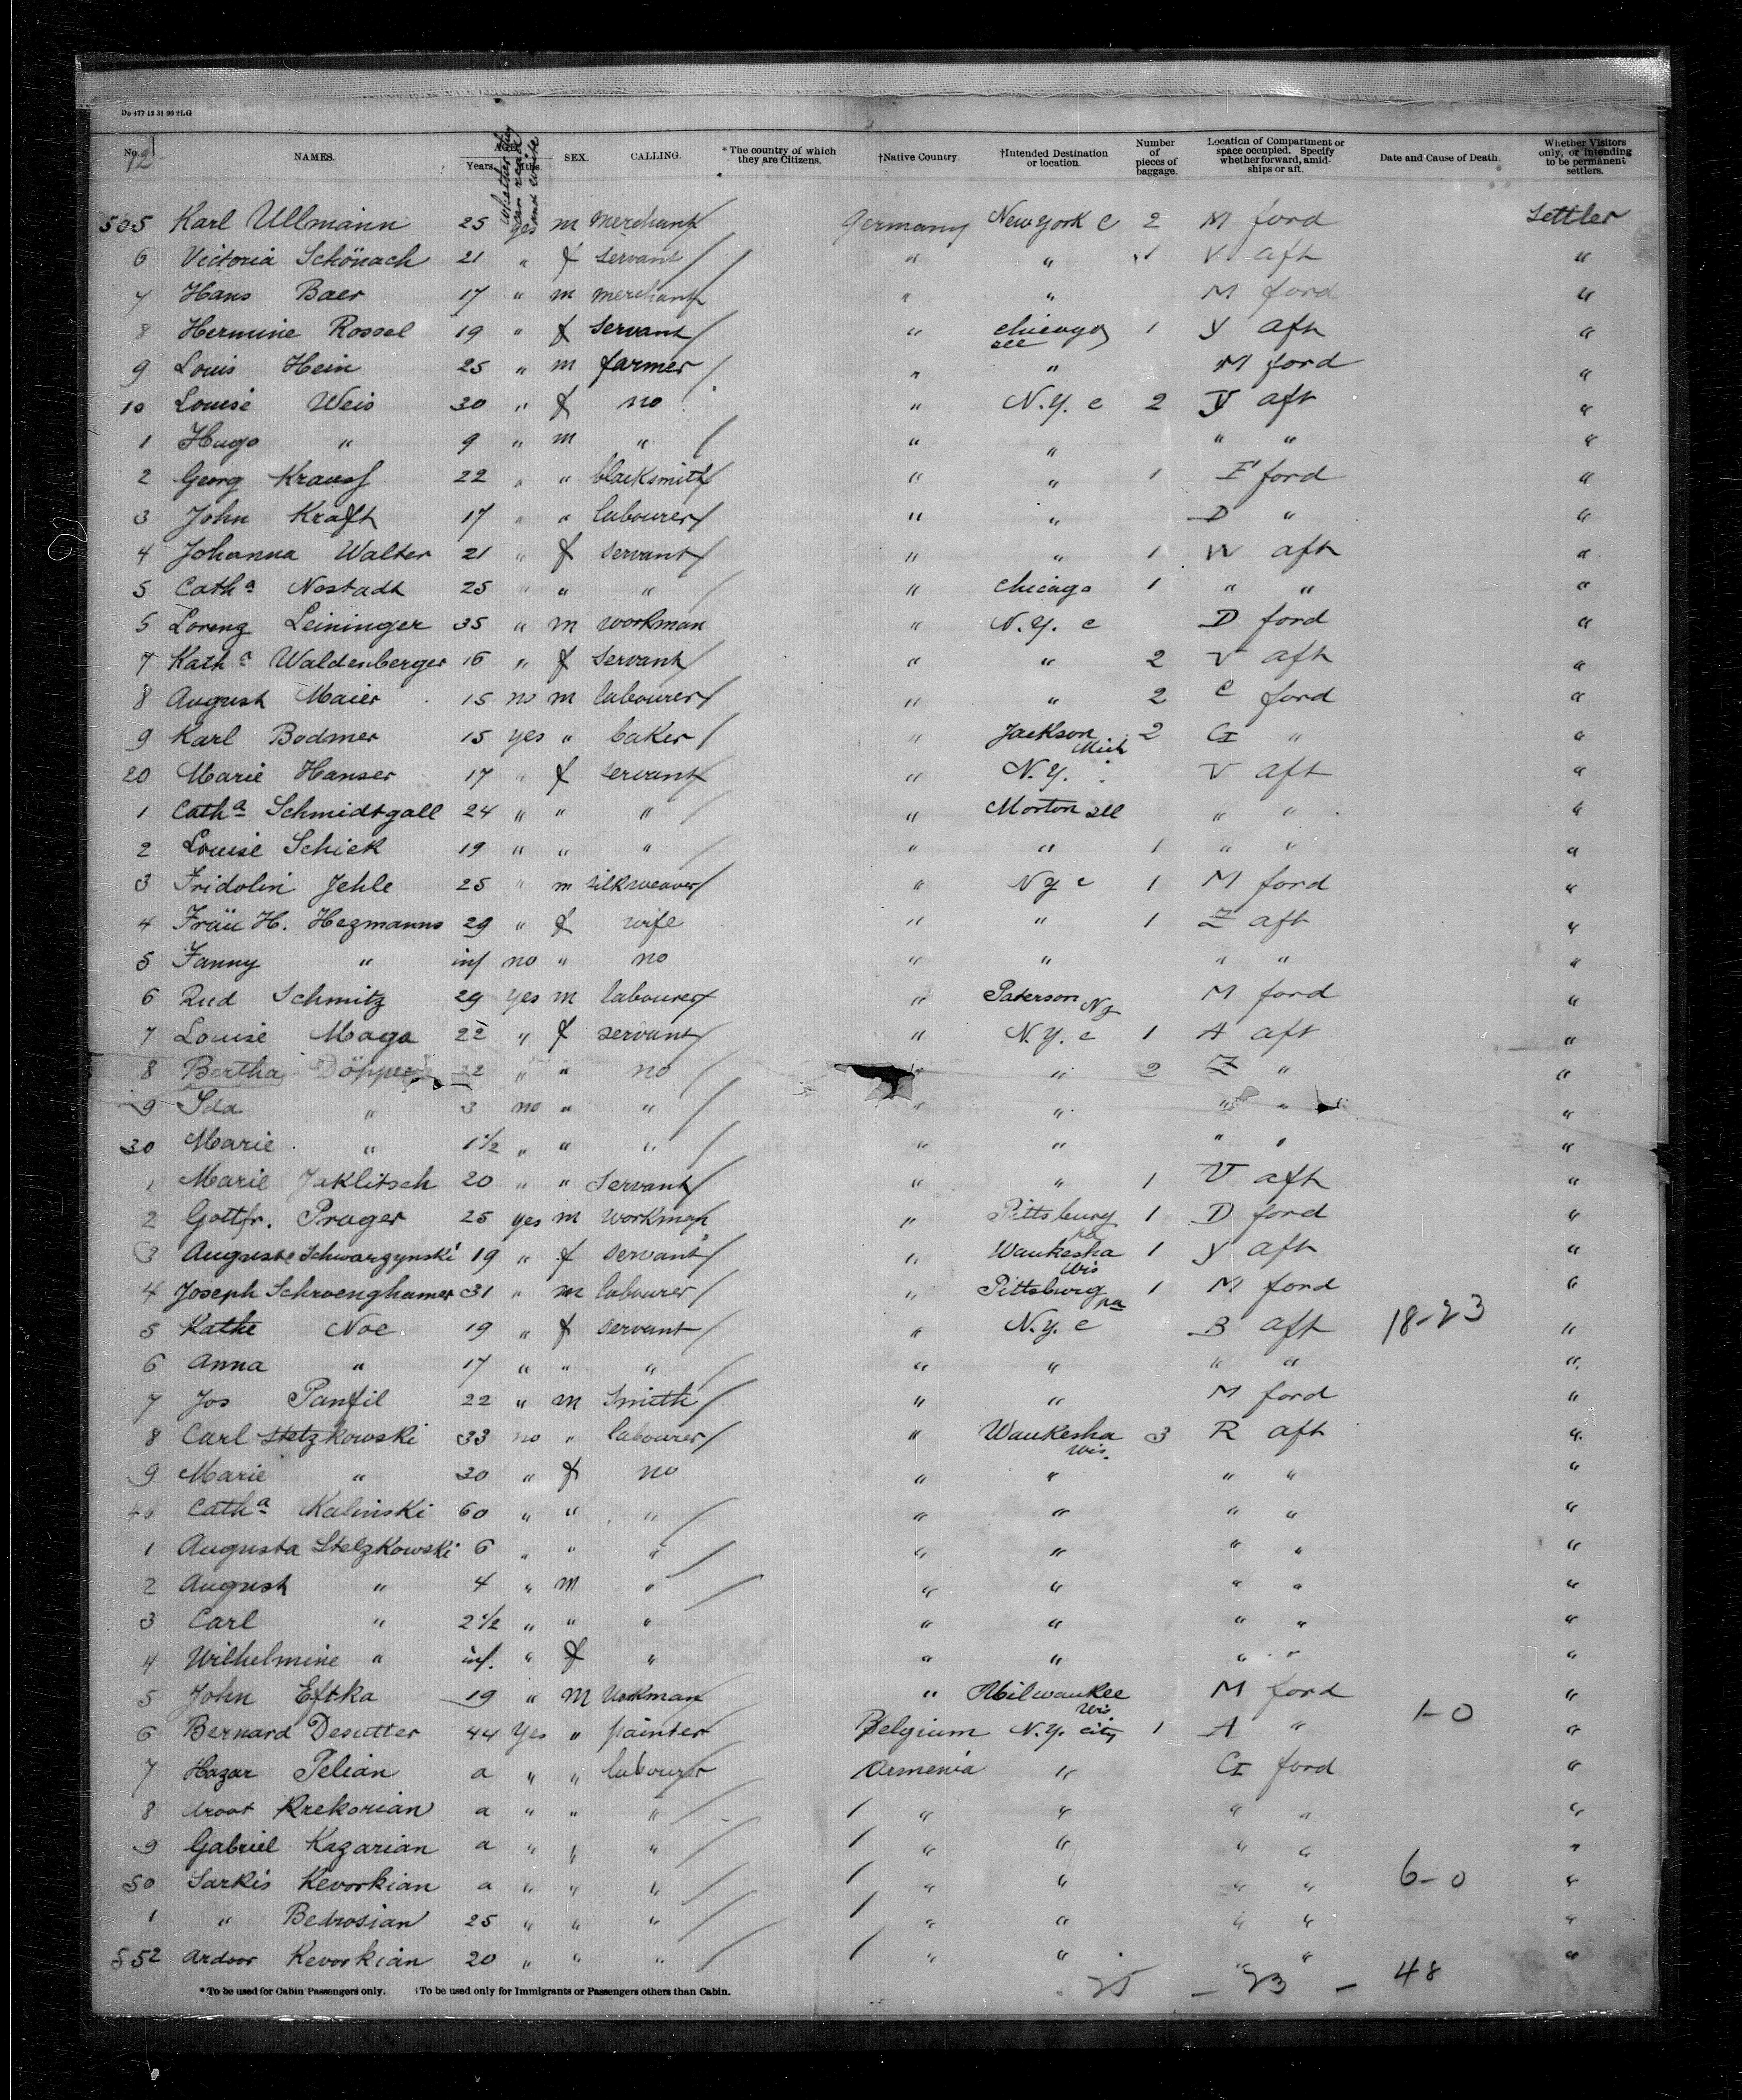 Do 477 12 31 90 2LG
No. NAMES. AGE Years. Mths. whether they can read and write SEX. CALLING. *The country of which they are Citizens. †Native Country. †Intended Destination or location. Number of pieces of baggage. Location of Compartment or space occupied. Specify whether forward, amidships or aft. Date and Cause of Death. Whether Visitors only, or intending to be permanent settlers.
12
505 Karl Ullmann 25 yes m merchant Germany New York C 2 M ford Settler
6 Victoria Schönach 21 " f servant " " 1 V aft "
7 Hans Baer 17 " m merchant " " M ford "
8 Hermine Rossel 19 " f servant " Chicago Ill 1 Y aft "
9 Louis Hein 25 " m farmer " " M ford "
10 Louise Weis 30 " f no " N.Y. c 2 Y aft "
1 Hugo " 9 " m " " " " " "
2 Georg Krauss 22 " " blacksmith " " 1 F ford "
3 John Kraft 17 " " labourer " " D " "
4 Johanna Walter 21 " f servant " " 1 W aft "
5 Cath a Nostadt 25 " " " " Chicago 1 " " "
6 Lorenz Leininger 35 " m workman " N.Y. c D ford "
7 Kath a Waldenberger 16 " f servant " " 2 V aft "
8 August Maier 15 no m labourer " " 2 C ford "
9 Karl Bodmer 15 yes " baker " Jackson Mich 2 G " "
20 Marie Hanser 17 " f servant " N.Y. V aft "
1 Cath a Schmidtgall 24 " " " " Morton Ill " " "
2 Louise Schick 19 " " " " " 1 " " "
3 Fridolin Jehle 25 " m silkweaver " N Y c 1 M ford "
4 Fräu H. Hezmanns 29 " f wife " " 1 Z aft "
5 Fanny " inf no " no " " " " "
6 Rud Schmitz 29 yes m labourer " Paterson NJ M ford "
7 Louise Maga 22 " f servant " N.Y. c 1 A aft "
8 Bertha 32 " " no " " 2 Z " "
9 Ida " 3 no " " " " " " "
30 Marie " 1 1/2 " " " " " " " "
1 Marie Jaklitsch 20 " " Servant " " 1 V aft "
2 Gottfr. Prager 25 yes m workman " Pittsburg Pa 1 D ford "
3 Auguste Schwarzynski 19 " f servant " Waukesha Wis 1 Y aft "
4 Joseph Schroenghamer 31 " m labourer " Pittsburg Pa 1 M ford "
5 Kathe Noe 19 " f servant " N.Y. c B aft 18-23 "
6 Anna " 17 " " " " " " " "
7 Jos Panfil 22 " m Smith " " M ford "
8 Carl Stelzkowski 33 no " labourer " Waukesha Wis. 3 R aft "
9 Marie " 30 " f no " " " " "
40 Cath a Kalinski 60 " " " " " " " "
1 Augusta Stelzkowski 6 " " " " " " " "
2 August " 4 " m " " " " " "
3 Carl " 2 1/2 " " " " " " " "
4 Wilhelmine " inf. " f " " " " " "
5 John Eftka 19 " m Workman " Milwaukee Wis M ford "
1-0
6 Bernard Desutter 44 Yes " painter Belgium N.Y. city 1 A " "
7 Hazar Pelian a " " labourer Armenia " G ford "
8 Aroot Krekorian a " " " / " " " " "
9 Gabriel Kazarian a " " " / " " " " "
50 Sarkis Kevorkian a " " " / " " " " 6-0 "
1 " Bedrosian 25 " " " / " " " " "
552 Ardoor Kevorkian 20 " " " / " " " " "
25 - 23 - 48
*To be used for Cabin Passengers only. †To be used only for Immigrants or Passengers others than Cabin.